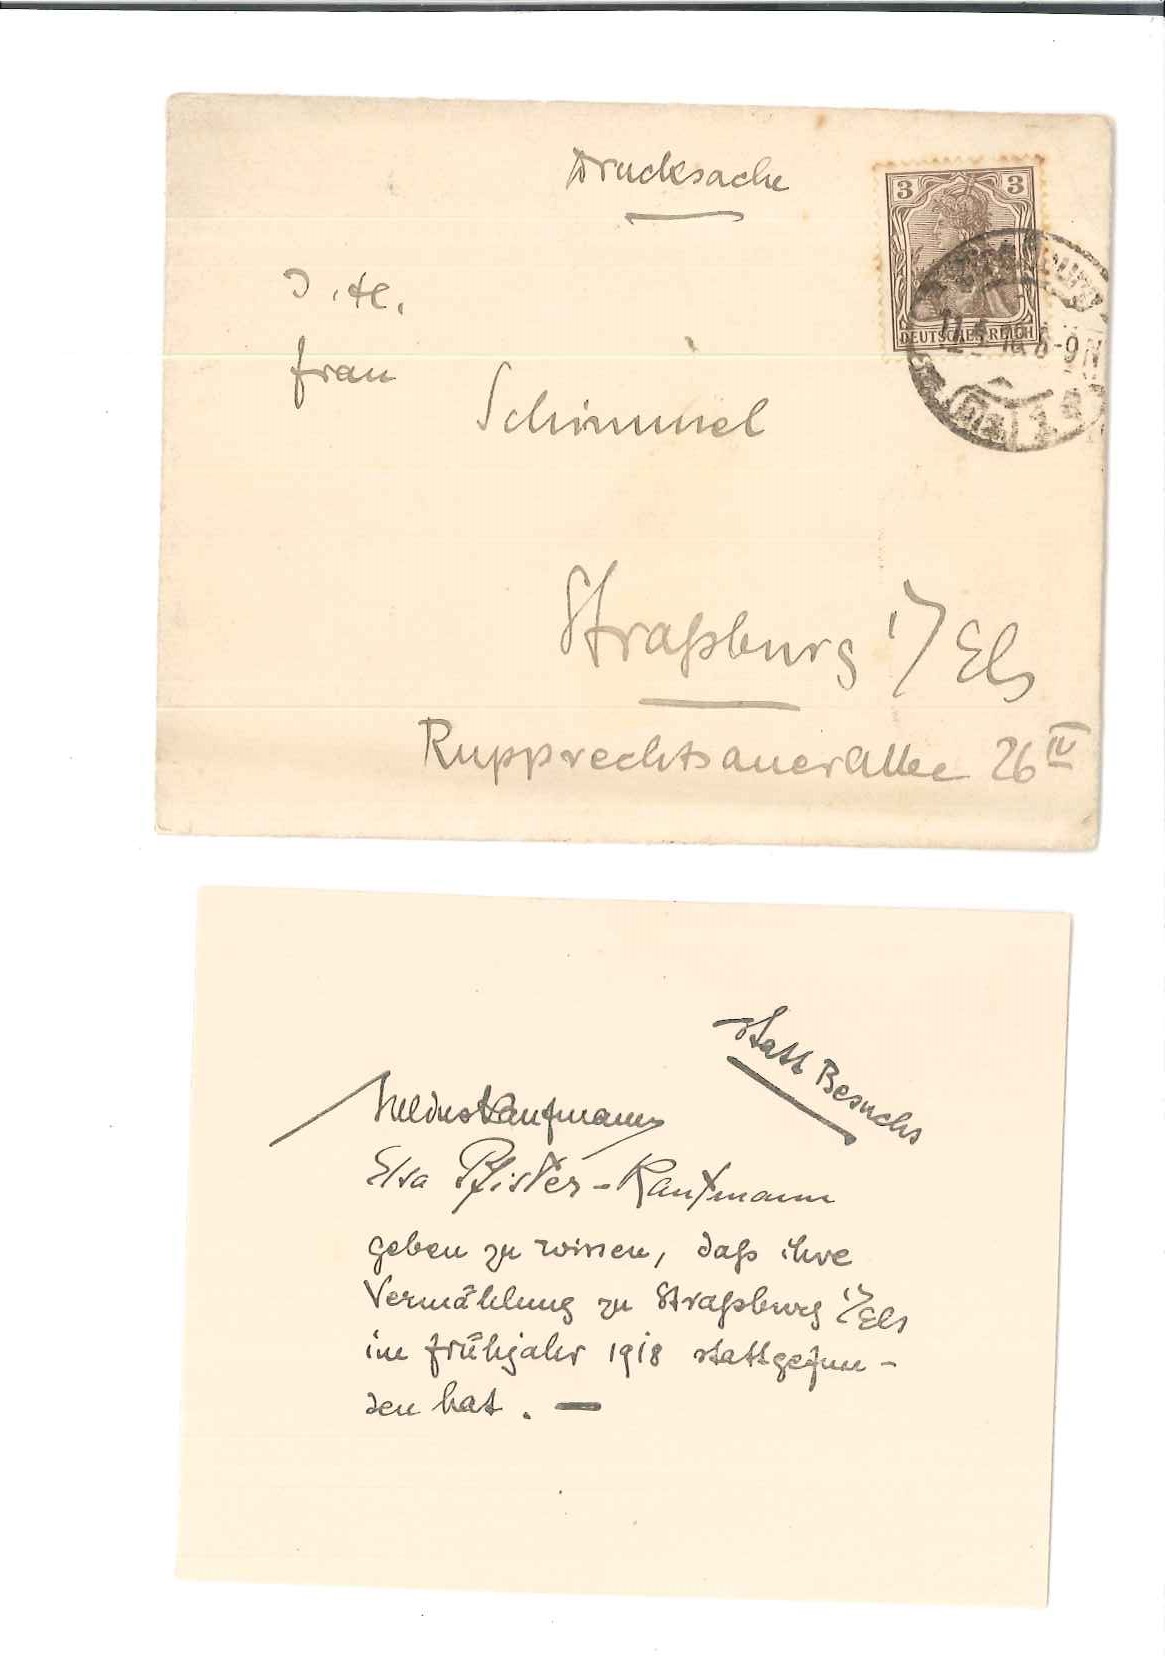 Drucksache
3 3
DEUTSCHES REICH
6-9N
J. H.
Frau
Schimmel
Straßburg i/Els
Rupprechtsauerallee 26 IV
statt Besuchs
Kaufmann
Elsa Pfister-Kaufmann
geben zu wissen, daß ihre
Vermählung zu Straßburg i/Els
im Frühjahr 1918 stattgefun-
den hat. —